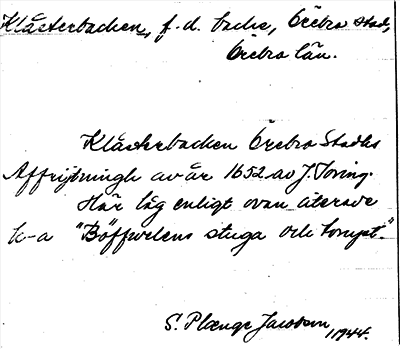 Klåsterbacken, f.d. backe, Örebro stad,
Örebro län.
Klåsterbacken Örebro Stadhs
Affrijtningh av år 1652 av J. Toring.
Här låg enligt ovan återade
k-a "Böffwelens stuga och tompt."
S. Plænge Jacobson
1944.